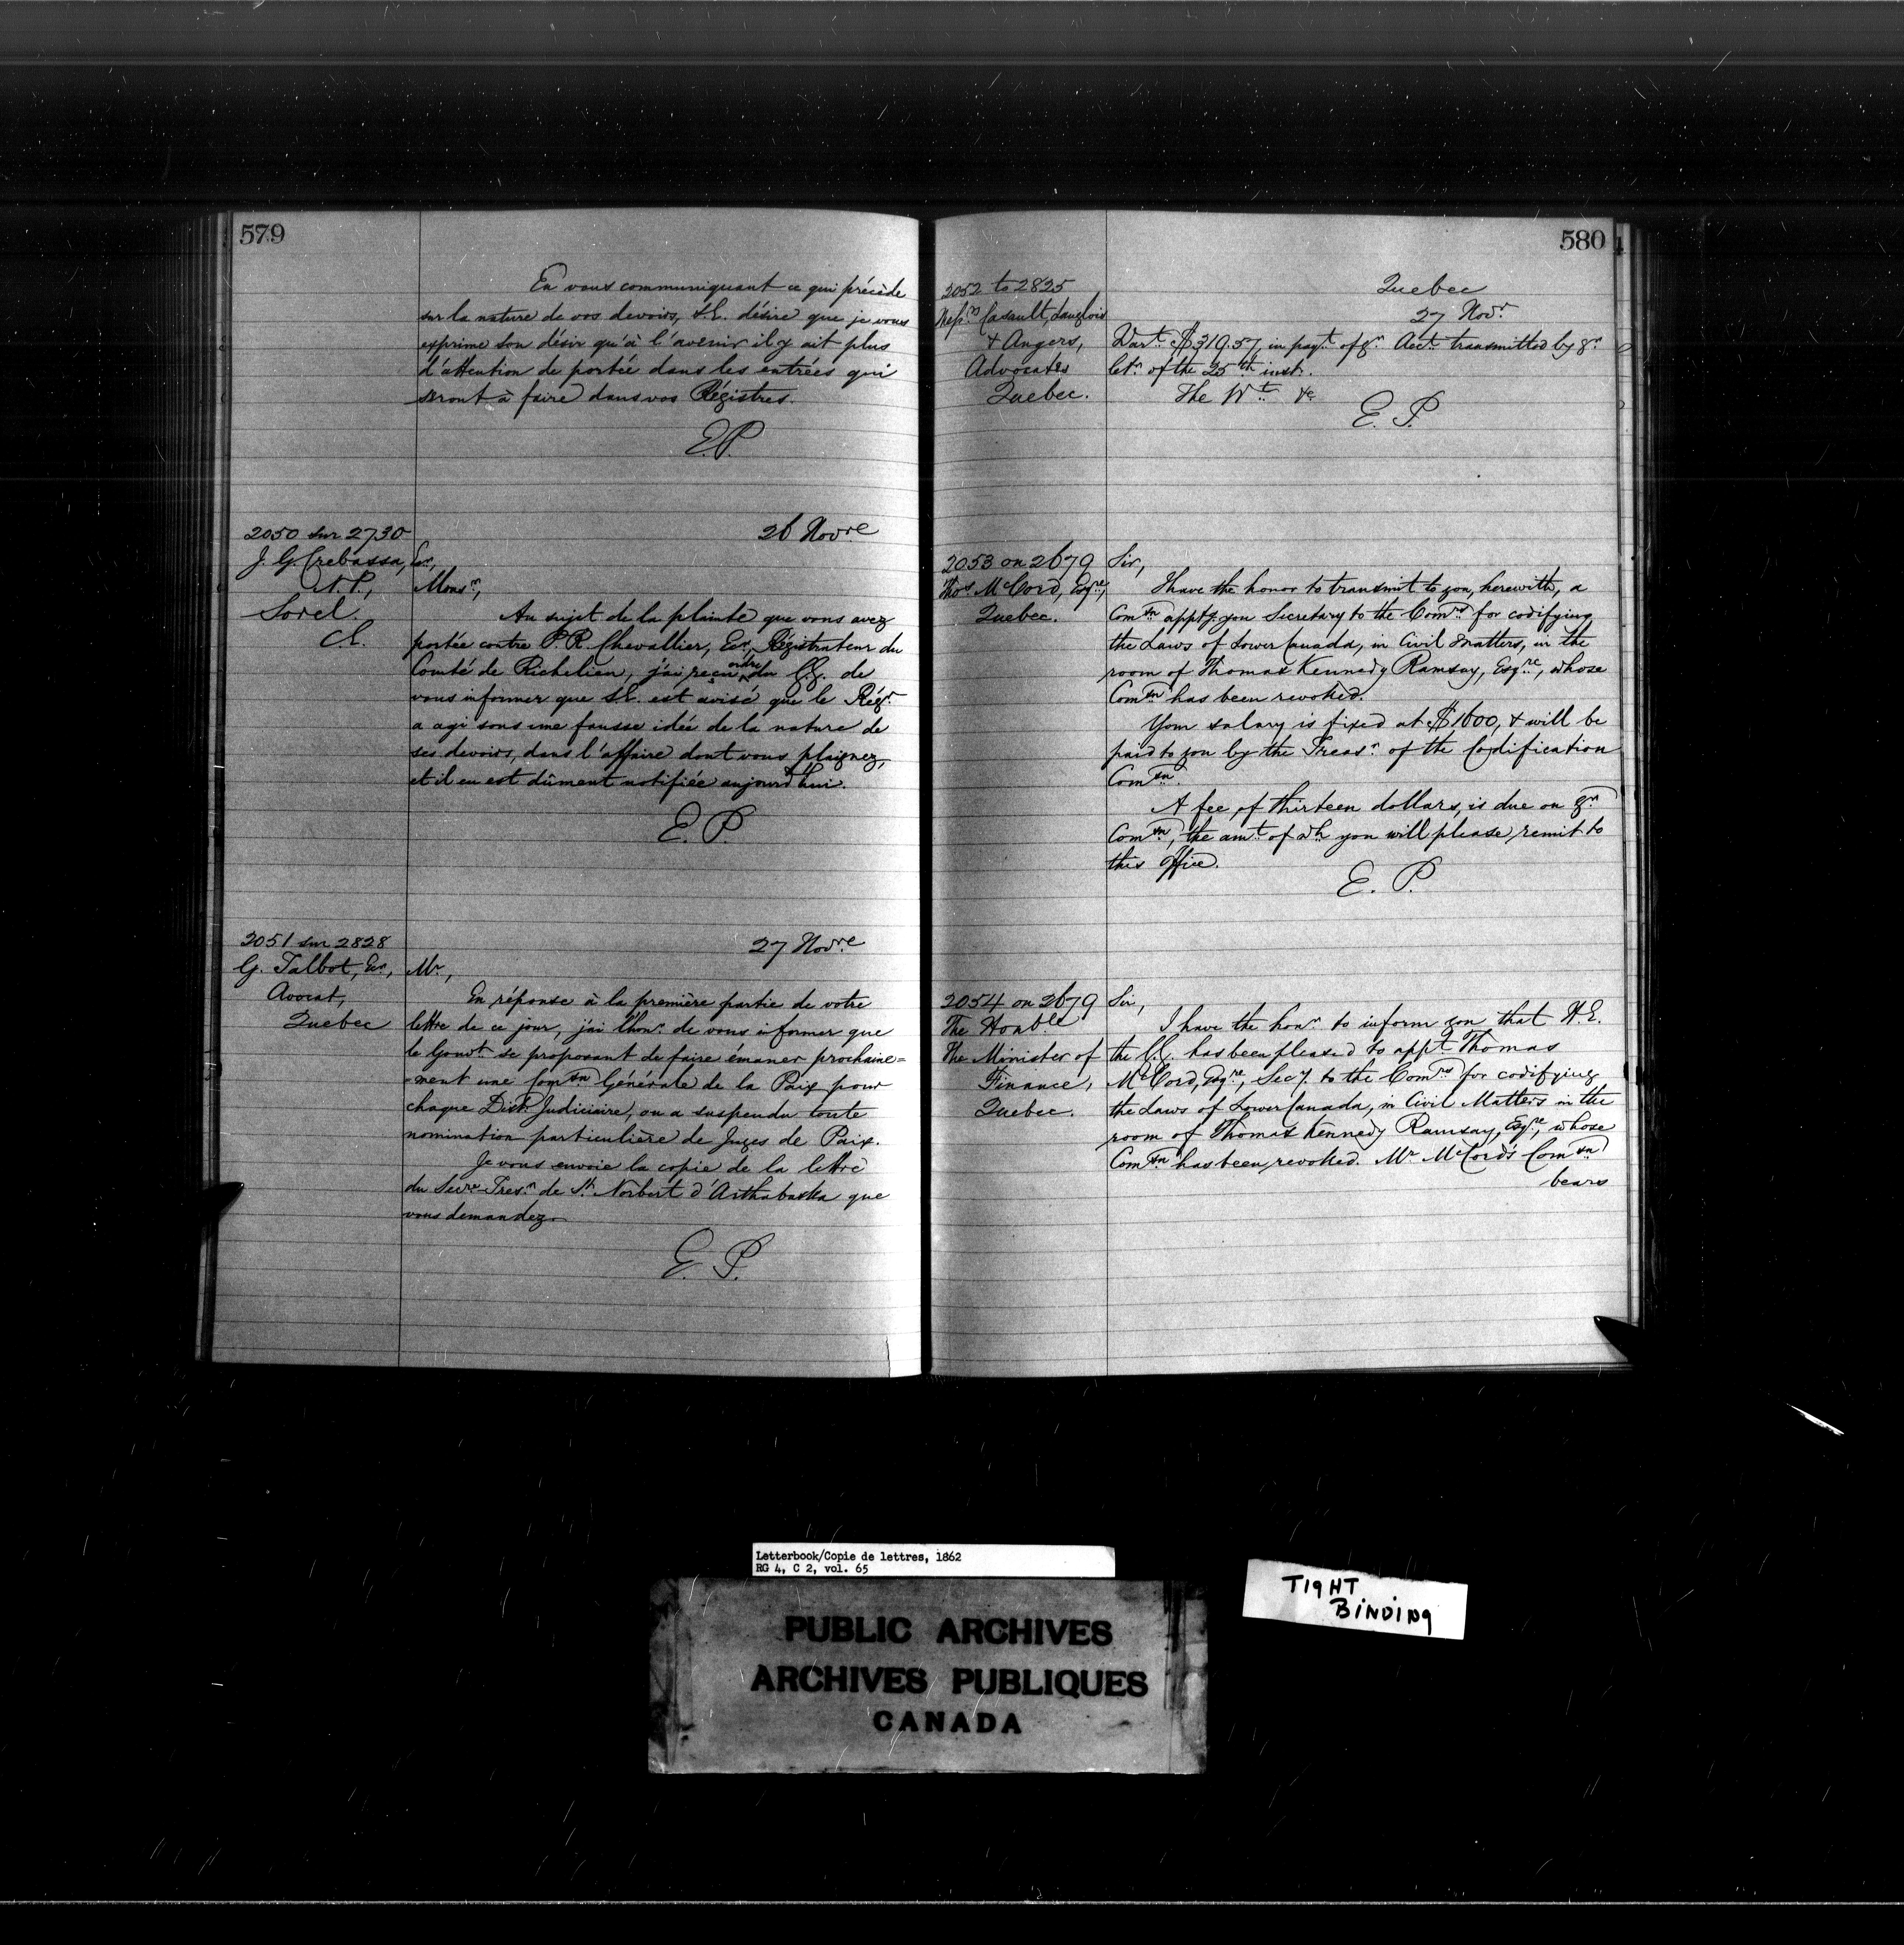 579
En vous communiquant ce qui précède
sur la nature de vos devoirs, S.E. désire que je vous
exprime son désir qu'à l'avenir il y ait plus
d'attention de portée dans les entrées qui
seront à faire dans vos Régistres.
E.P.
2050 sur 2730
26 Novre
J. G. Crebassa, Ecr,
N. P.,
Sorel.
C.E.
Monsr,
Au sujet de la plainte que vous avez
portée contre P. R. Chevallier, Ecr, Régistrateur du
Comté de Richelieu, j'ai reçu ordre du G.G. de
vous informer que S.E. est avisé que le Régr
a agi sous une fausse idée de la nature de
ses devoirs, dans l'affaire dont vous plaignez,
et il en est dûment notifiée aujourd'hui.
E.P.
2051 sur 2828
27 Novre
G. Talbot, Ecr,
Avocat,
Quebec
Mr,
En réponse à la première partie de votre
lettre de ce jour, j'ai l'honr de vous informer que
le Gouvt se proposant de faire émaner prochaine=
=ment une Comsn Générale de la Paix pour
chaque Distt Judiciaire, on a suspendu toute
nomination particulière de Juges de Paix.
Je vous envoie la copie de la lettre
du Secre-Tresr de St Norbert d'Arthabaska que
vous demandez.
E. P.
580
2052 to 2825
Messrs Casault, Langlois
& Angers,
Advocates
Quebec.
Quebec
27 Novr
Wart $310.57, in payt of yr Acct transmitted by yr
letr of the 25th inst.
The Wt &c
E. P.
2053 on 2679
Thos McCord, Esqre,
Quebec.
Sir,
I have the honor to transmit to you, herewith, a
Comsn apptg you Secretary to the Comrs for codifying
the Laws of Lower Canada, in Civil Matters, in the
room of Thomas Kennedy Ramsay, Esqre, whose
Comsn has been revoked.
Your salary is fixed at $1600, & will be
paid to you by the Treasr of the Codification
Comsn.
A fee of thirteen dollars, is due on yr
Comsn, the amt of wh you will please remit to
this Office.
E. P.
2054 on 2679
The Honble
The Minister of
Finance,
Quebec.
Sir,
I have the honr to inform you that H.E.
the G.G. has been pleased to appt Thomas
McCord, Esqre, Secy. to the Comrs for codifying
the Laws of Lower Canada, in Civil Matters in the
room of Thomas Kennedy Ramsay, Esqre, whose
Comsn has been revoked. Mr McCord's Comsn
bears
Letterbook/Copie de lettres, 1862
RG 4, C 2, vol. 65
PUBLIC ARCHIVES
ARCHIVES PUBLIQUES
CANADA
TIGHT
BINDING